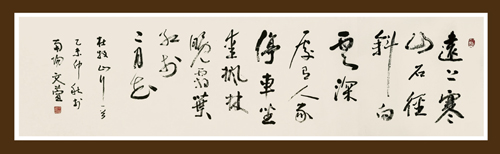 遠上寒
山石徑
斜白
雲深
處有人家
停車坐
愛楓林
晚霜葉
紅於
二月花
杜牧山行一首
乙未仲秋於